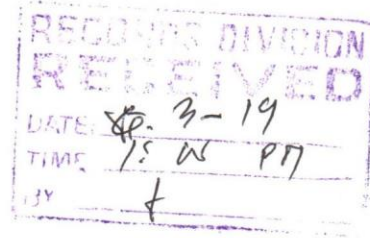 RECORDS DIVISION
RECEIVED
DATE: 3-19
TIME PM
BY